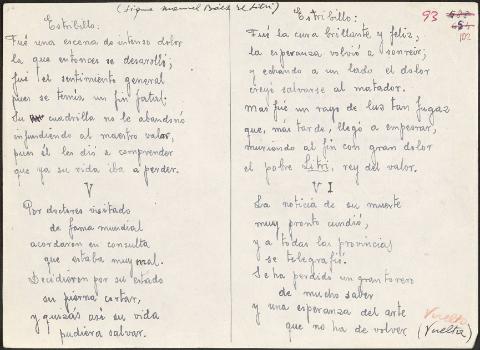 (sigue Manuel Báez el Litri)
Estribillo:
Fué una escena de intenso dolor
la que entonces se desarolló;
fué el sentimiento general
pues se temía un fin fatal.
Su cuadrilla no le abandonó
infundiendo al maestro valor,
pues él les dió a comprender
que ya su vida iba a perder.
V
Por doctores visitado
de fama mundial
acordaron en consulta
que estaba muy mal.
Decidieron por su estado
su pierna cortar,
y quizás así su vida
pudiera salvar.
Estribillo:
Fué la cura brillante y feliz,
la esperanza volvió a sonreir;
y echando a un lado el dolor
creyó salvarse al matador.
Mas fué un rayo de luz tan fugaz
que, más tarde, llegó a empeorar,
muriendo al fin con gran dolor
el pobre Litri, rey del valor.
VI
La noticia de su muerte
muy pronto cundió,
y a todas las provincias
se telegrafió.
Se ha perdido un gran torero
de mucho saber
y una esperanza del arte
que no ha de volver
Vuelta
(Vuelta)
93
102